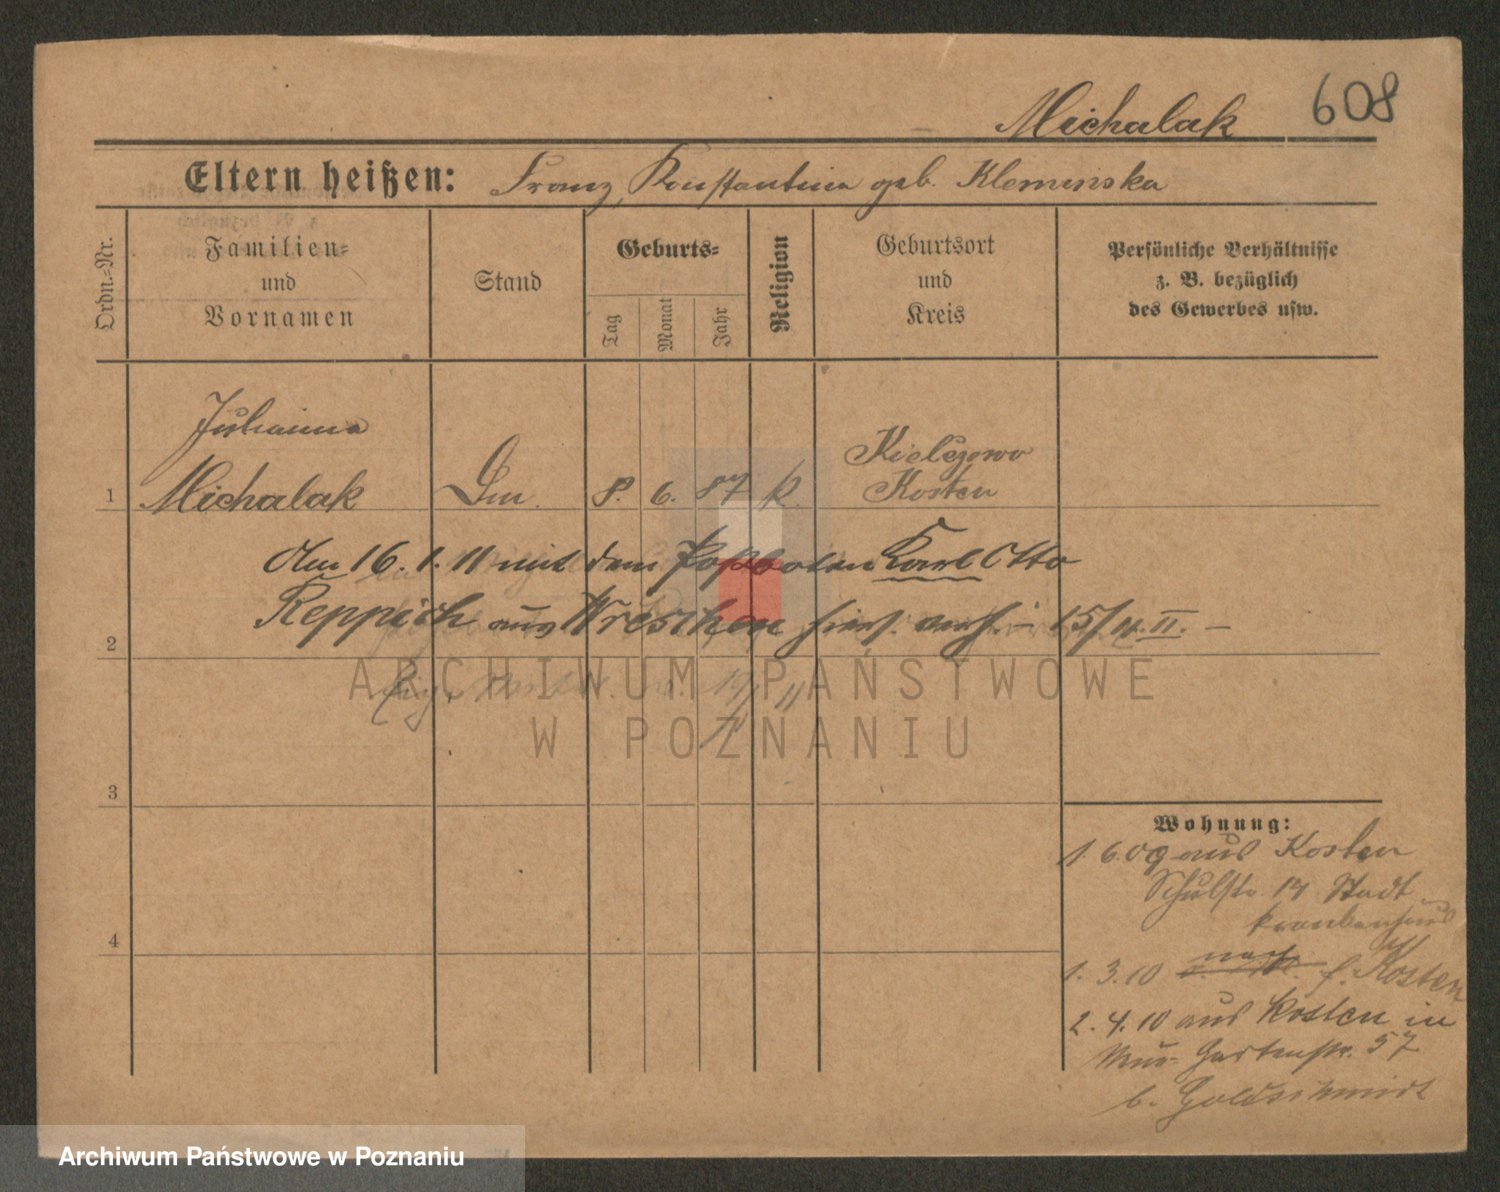 Michalak 608
Eltern heißen: Franz, Konstantina geb. Klemenska
Ordn.-Nr.
Familien-
und
Vornamen
Stand
Geburts-
Tag
Monat
Jahr
Religion
Geburtsort
und
Kreis
Persönliche Verhältnisse
z. B. bezüglich
des Gewerbes usw.
Julianna
1 Michalak Dm. 8. 6. 87 k. Kielczewo
Kosten
Am 16. 1. 11 mit dem Postboten Karl Otto
Reppich aus Wreschen
2
3
4
Wohnung:
1. 6. 09 aus Kosten
Schulstr. 14 Stadt
krankenhaus
1. 3. 10 nach Kosten
2. 4. 10 aus Kosten in
Gartenstr. 57
b. Goldschmidt
ARCHIWUM PAŃSTWOWE
W POZNANIU
Archiwum Państwowe w Poznaniu